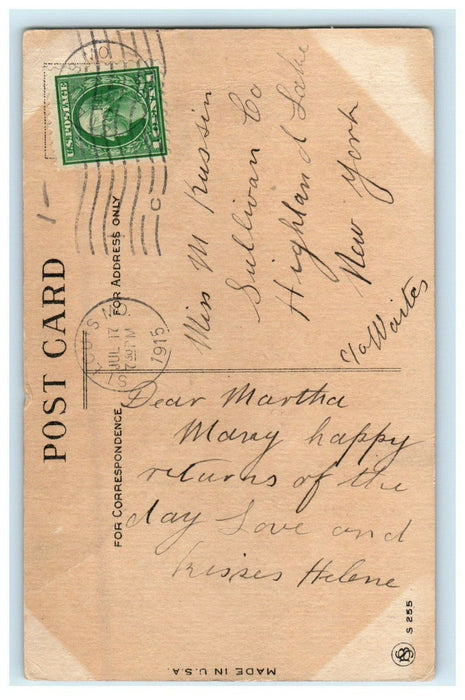 U.S. POSTAGE
1 CENT 1
POST CARD
FOR ADDRESS ONLY
ST. LOUIS, MO.
JUL 17
7 30 PM
1915
Miss M Russin
Sullivan Co
Highland Lake
New York
c/o Waites
FOR CORRESPONDENCE
Dear Martha
Many happy
returns of the
day Love and
kisses Helene
S 255
MADE IN U.S.A.